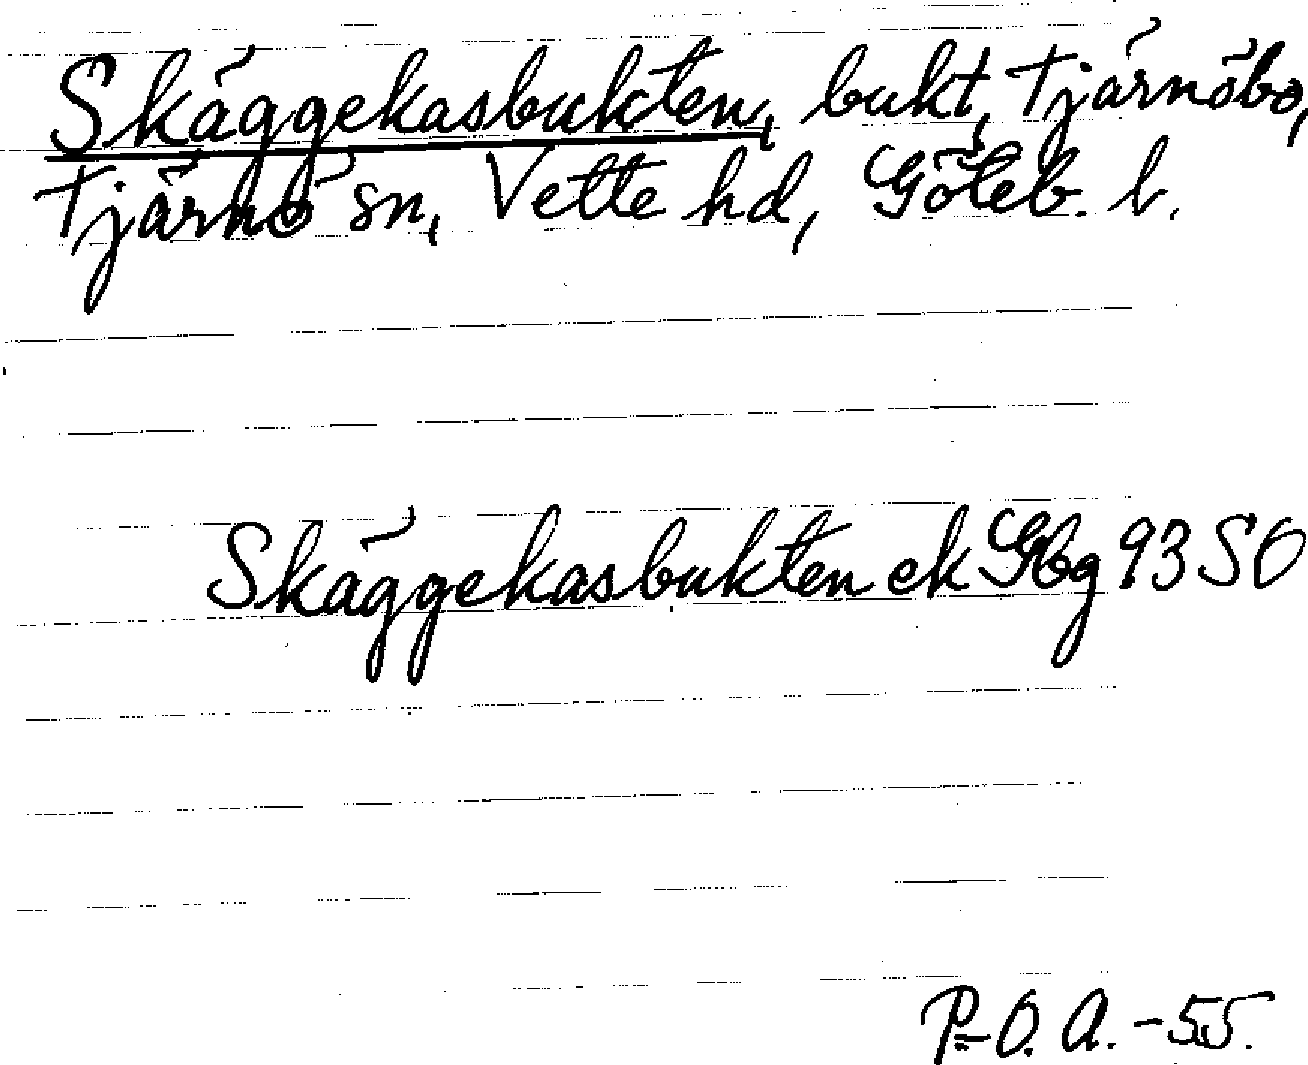 Skäggekasbukten, bukt, Tjärnöbo,
Tjärnö sn, Vette hd, Göteb. l.
Skäggekasbukten ek Gbg 93 SO
P-O. A. -55.